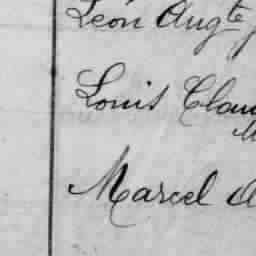 Léon Augte
Louis Clau
Marcel